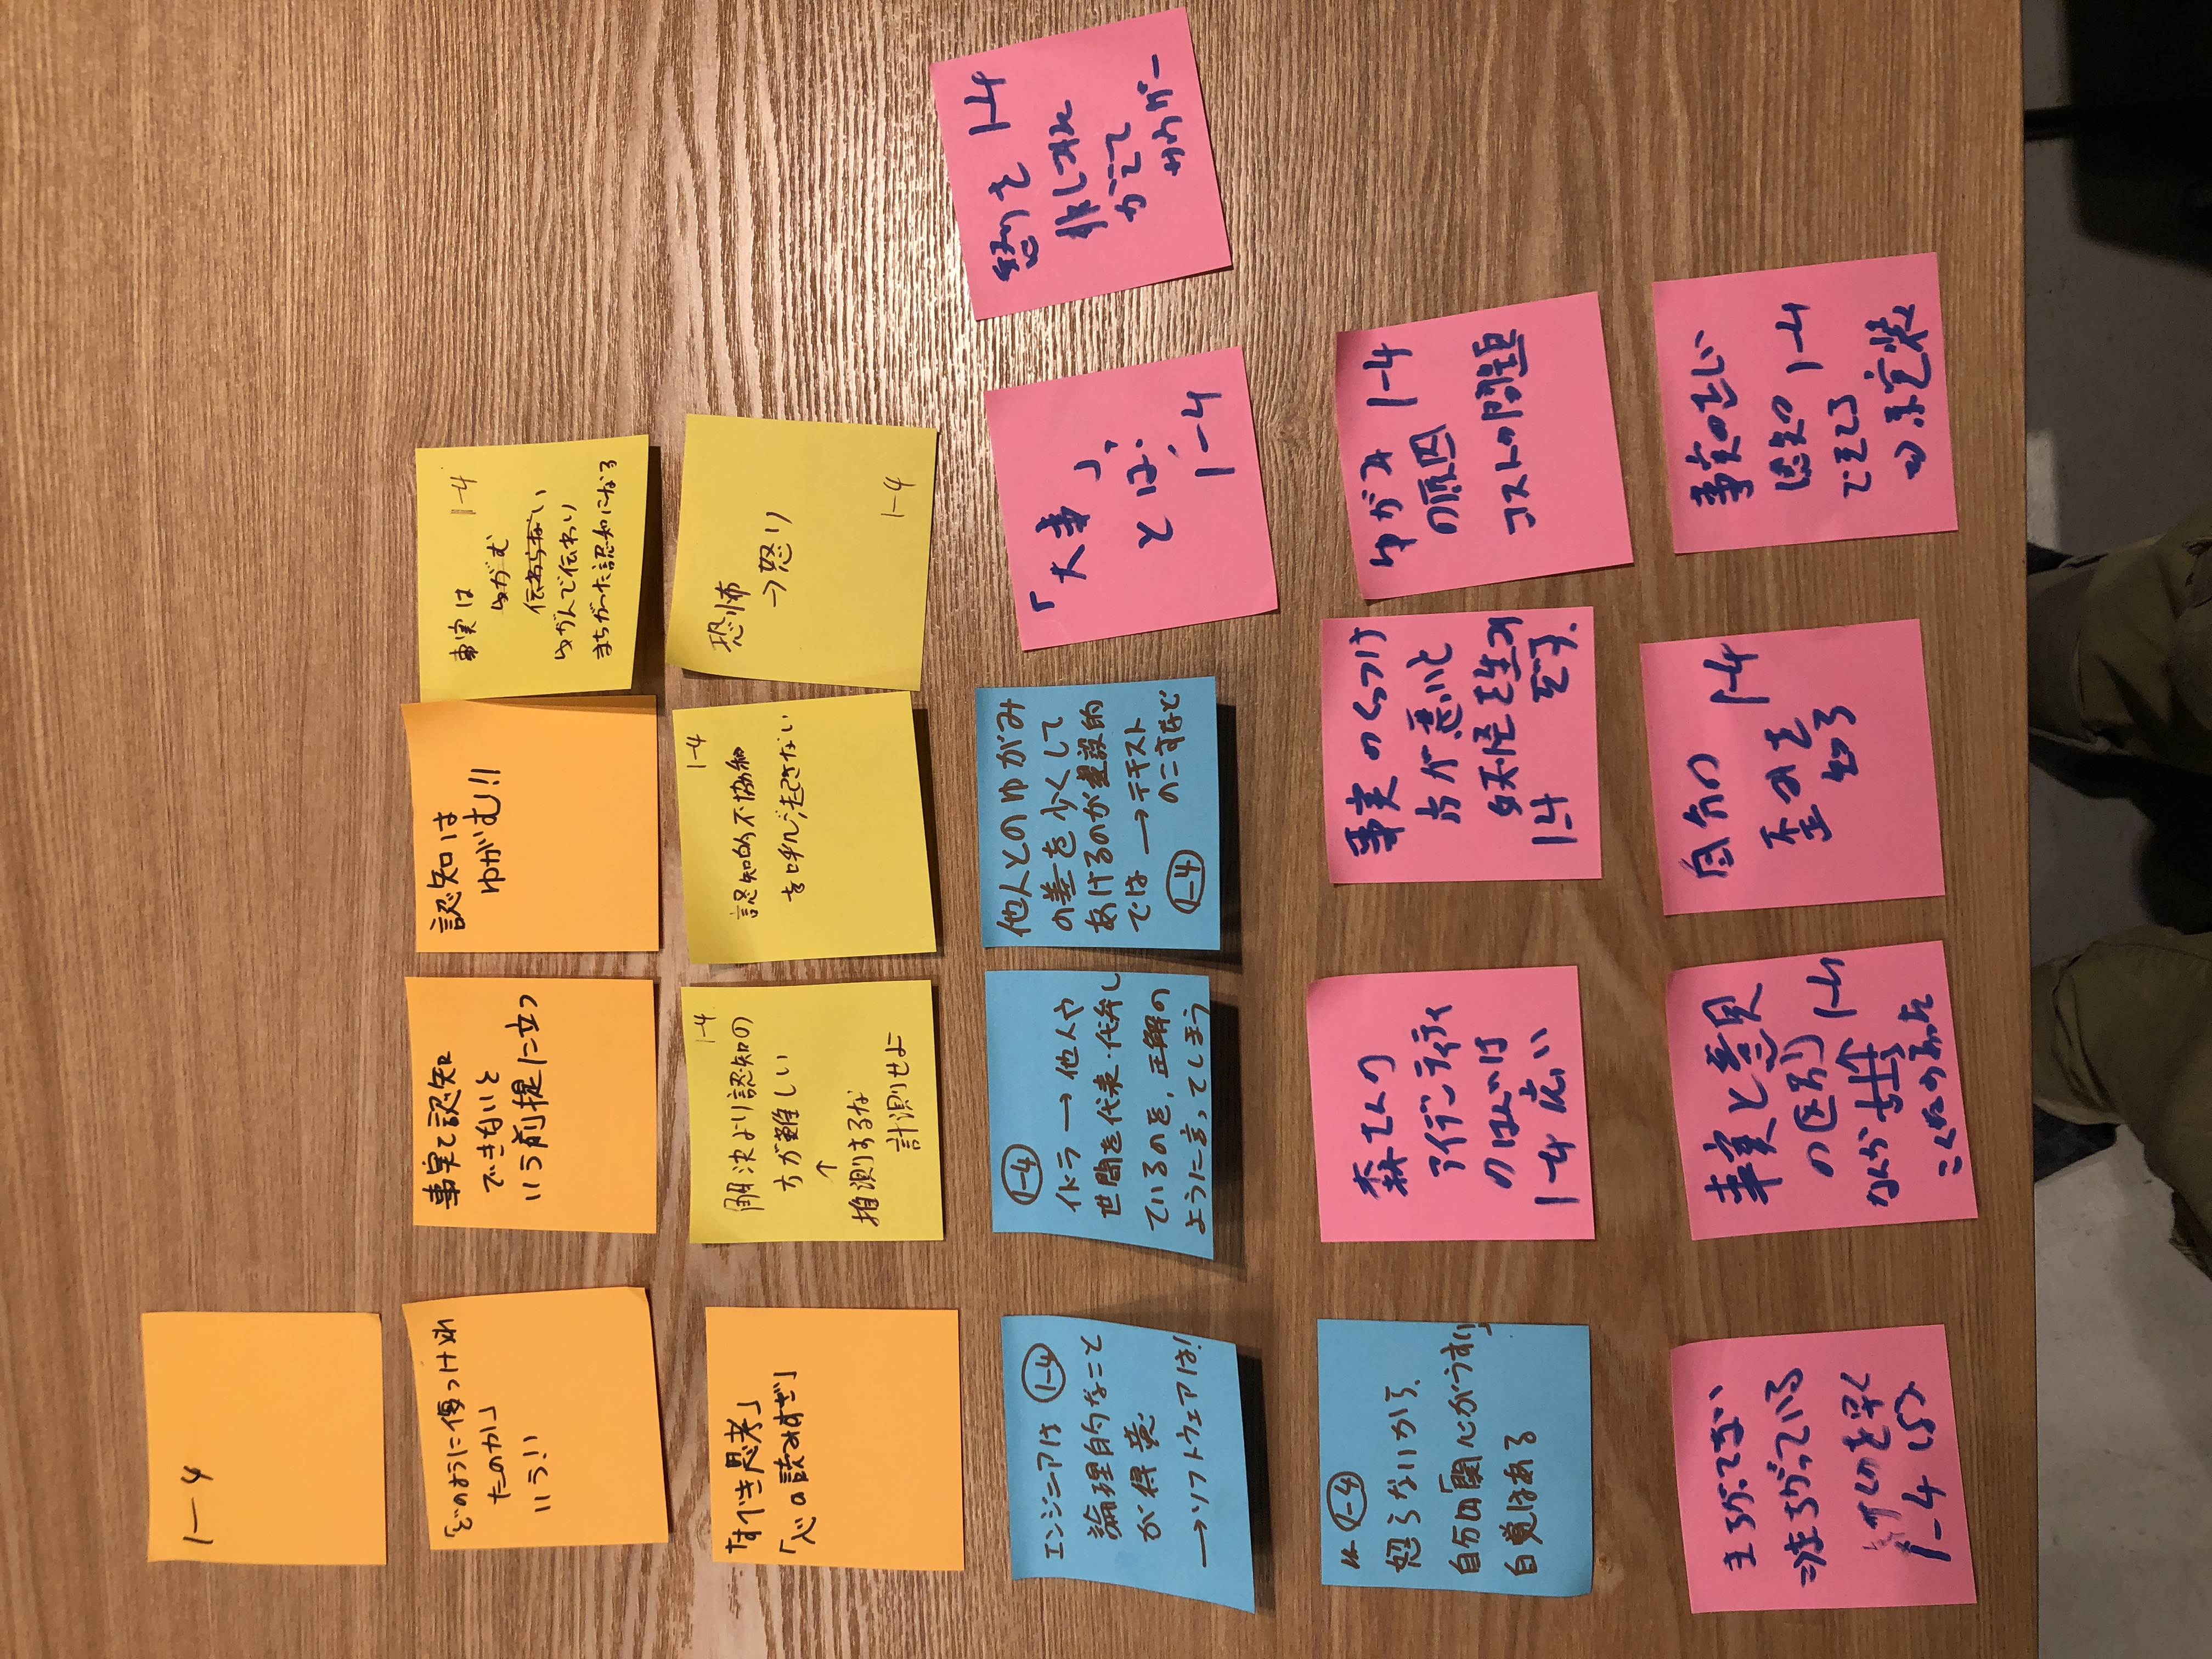 1-4
「どのように傷つけられ
たのか」
いう!!
事実で認知
できないと
いう前提に立つ
認知は
ゆがむ!!
事実は 1-4
ゆがむ
伝わらない
ゆがんで伝わり
まちがった認知になる
「すべき思考」
「心の読みすぎ」
1-4
解決より認知の
方が難しい
↑
推測するな
計測せよ
1-4
認知的不協和
を呼び起さない
恐怖
→怒り
1-4
エンジニアは 1-4
論理的なこと
が得意
→ソフトウェアは!
1-4
イドラ → 他人や
世間を代表・代弁し
ているのを、正解の
ように言ってしまう
他人とのゆがみ
の差を少くして
あげるのが建設的
では → テキスト
のこすなど
1-4
「大事」
とは?
1-4
怒りを 1-4
サウザー
1-4
怒らないから、
自分は「関心がうすい」
自覚はある
森さんの
アイデンティティ
のはんいは
1-4 広い
事実のくっつけ
方が悪いと
妖怪を生み
1-4 だす.
ゆがみ 1-4
の原因
コストの問題
まちがってない
⇒まちがっている
1-4
事実と意見
の区別
1-4
なんか
自分の
1-4
歪みを
知る
事実の正しい
認知 1-4
できてる
⇒未定装